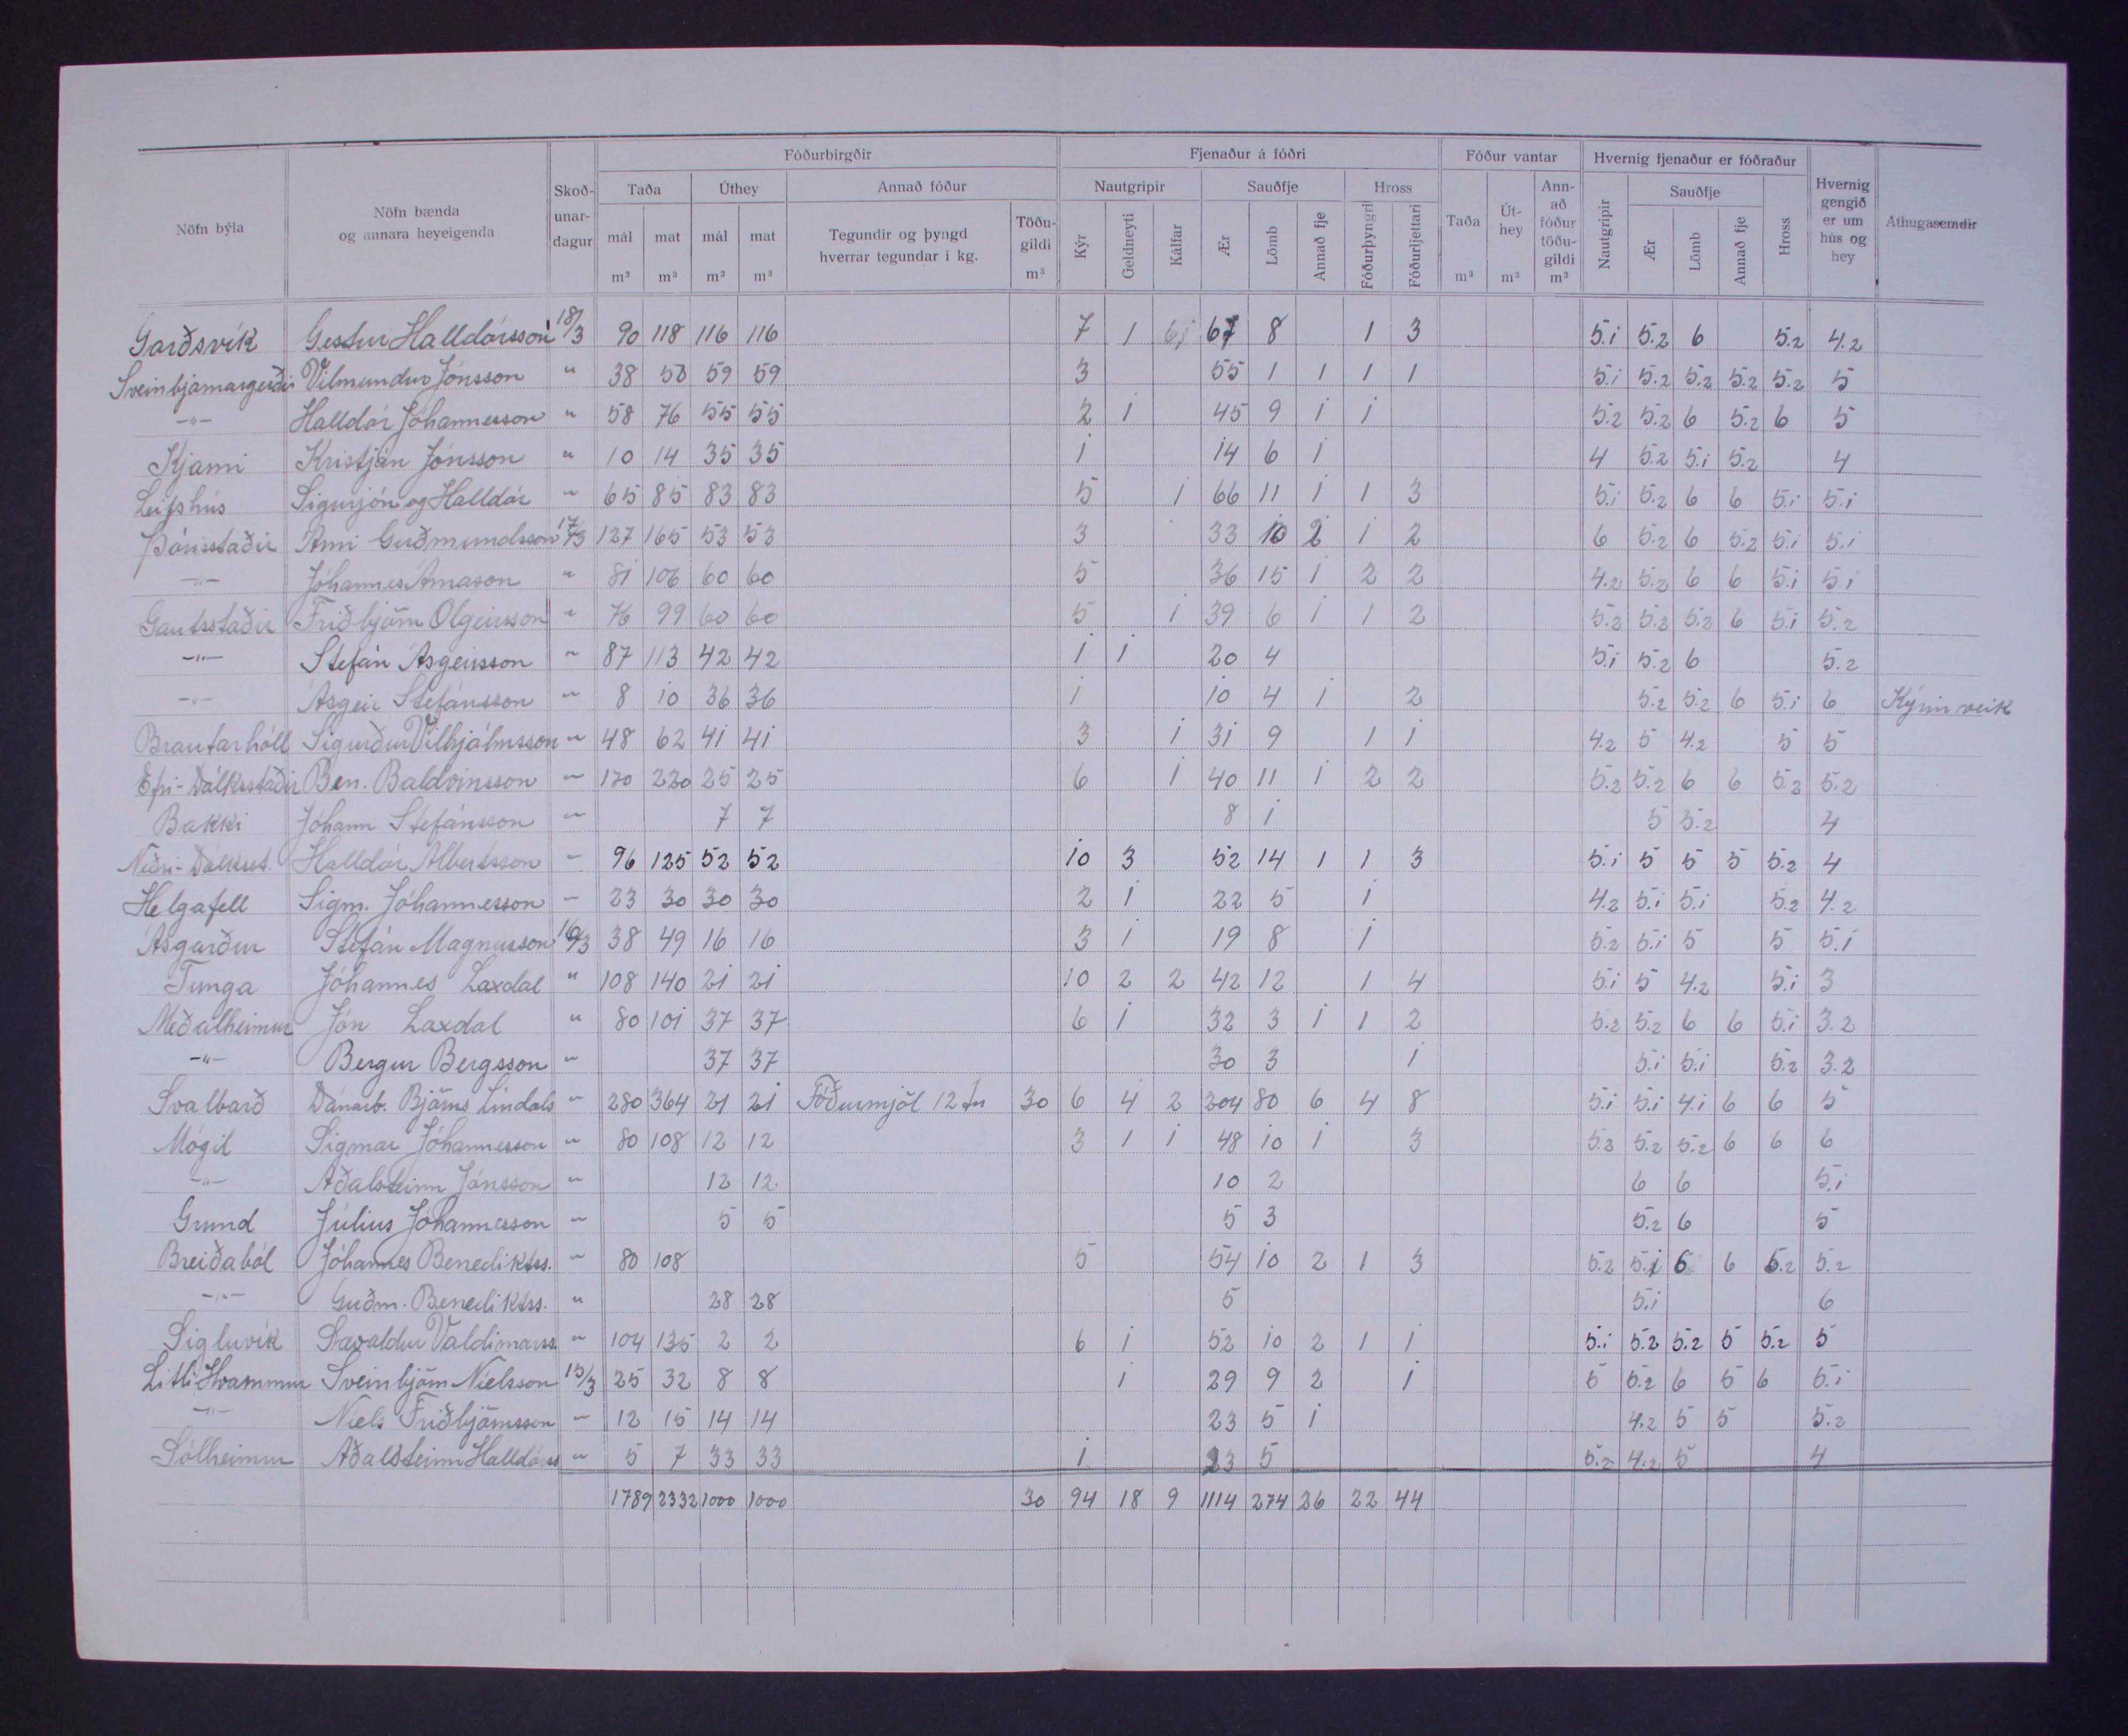 Fóðurbirgðir Fjenaður á fóðri Fóður vantar Hvernig fjenaður er fóðraður
Nöfn býla Nöfn bænda og annara heyeigenda Skoð-unar-dagur Taða Úthey Annað fóður Nautgripir Sauðfje Hross Taða Út-hey Ann-að fóður töðu-gildi Nautgripir Sauðfje Hross Hvernig gengið er um hús og hey Athugasemdir
mál mat mál mat Tegundir og þyngd hverrar tegundar í kg. Töðu-gildi Kýr Geldneyti Kálfar Ær Lömb Annað fje Fóðurþyngri Fóðurljettari Ær Lömb Annað fje
m³ m³ m³ m³ m³ m³ m³ m³
Garðsvík Gestur Halldórsson 18/3 90 118 116 116 7 1 67 8 1 3 5.1 5.2 6 5.2 4.2
Sveinbjarnargerði Vilmundur Jónsson " 38 50 59 59 3 55 1 1 1 1 5.1 5.2 5.2 5.2 5.2 5
-"- Halldór Jóhannesson " 58 76 55 55 2 1 45 9 1 1 5.2 5.2 6 5.2 6 5
Kjarni Kristján Jónsson " 10 14 35 35 1 14 6 1 4 5.2 5.1 5.2 4
Leifshús Sigurjón og Halldór " 65 85 83 83 5 1 66 11 1 1 3 5.1 5.2 6 6 5.1 5.1
Þórisstaðir Árni Guðmundsson 17/3 127 165 53 53 3 33 10 2 1 2 6 5.2 6 5.2 5.1 5.1
-"- Jóhannes Árnason " 81 106 60 60 5 36 15 1 2 2 4.2 5.2 6 6 5.1 5.1
Gautsstaðir Friðbjörn Olgeirsson " 76 99 60 60 5 1 39 6 1 1 2 5.2 5.2 5.2 6 5.1 5.2
-"- Stefán Ásgeirsson " 87 113 42 42 1 1 20 4 5.1 5.2 6 5.2
-"- Ásgeir Stefánsson " 8 10 36 36 1 10 4 1 2 5.2 5.2 6 5.1 6 Kýrin veik
Brautarhóll Sigurður Vilhjálmsson " 48 62 41 41 3 1 31 9 1 1 4.2 5 4.2 5 5
Efri-Dálksstaðir Ben. Baldvinsson " 170 220 25 25 6 1 40 11 1 2 2 5.2 5.2 6 6 5.2 5.2
Bakki Jóhann Stefánsson " 7 7 8 1 5 5.2 4
Neðri-Dálksst. Halldór Albertsson " 96 125 52 52 10 3 52 14 1 1 3 5.1 5 5 5 5.2 4
Helgafell Sigm. Jóhannesson " 23 30 30 30 2 1 22 5 1 4.2 5.1 5.1 5.2 4.2
Ásgarður Stefán Magnusson 16/3 38 49 16 16 3 1 19 8 1 5.2 5.1 5 5 5.1
Tunga Jóhannes Laxdal " 108 140 21 21 10 2 2 42 12 1 4 5.1 5 4.2 5.1 3
Meðalheimur Jón Laxdal " 80 101 37 37 6 1 32 3 1 1 2 5.2 5.2 6 6 5.1 3.2
-"- Bergur Bergsson " 37 37 30 3 1 5.1 5.1 5.2 3.2
Svalbarð Dánarb. Björns Líndals " 280 364 21 21 Fóðurmjöl 12 tn 30 6 4 2 204 80 6 4 8 5.1 5.1 4.1 6 6 5
Mógil Sigmar Jóhannesson " 80 108 12 12 3 1 1 48 10 1 3 5.2 5.2 5.2 6 6 6
-"- Aðalsteinn Jónsson " 12 12 10 2 6 6 5.1
Grund Július Jóhannesson " 5 5 5 3 5.2 6 5
Breiðaból Jóhannes Benediktss. " 80 108 5 54 10 2 1 3 5.2 5.1 6 6 5.2 5.2
-"- Guðm. Benediktss. " 28 28 5 5.1 6
Sigluvík Sævaldur Valdimarss. " 104 135 2 2 6 1 52 10 2 1 1 5.1 5.2 5.2 5 5.2 5
Litli Hvammur Sveinbjörn Níelsson 15/3 25 32 8 8 1 29 9 2 1 5 5.2 6 5 6 5.1
-"- Níels Friðbjörnsson " 12 15 14 14 23 5 1 4.2 5 5 5.2
Sólheimur Aðalsteinn Halldórss " 5 7 33 33 1 23 5 5.2 4.2 5 4
1789 2332 1000 1000 30 94 18 9 1114 274 26 22 44